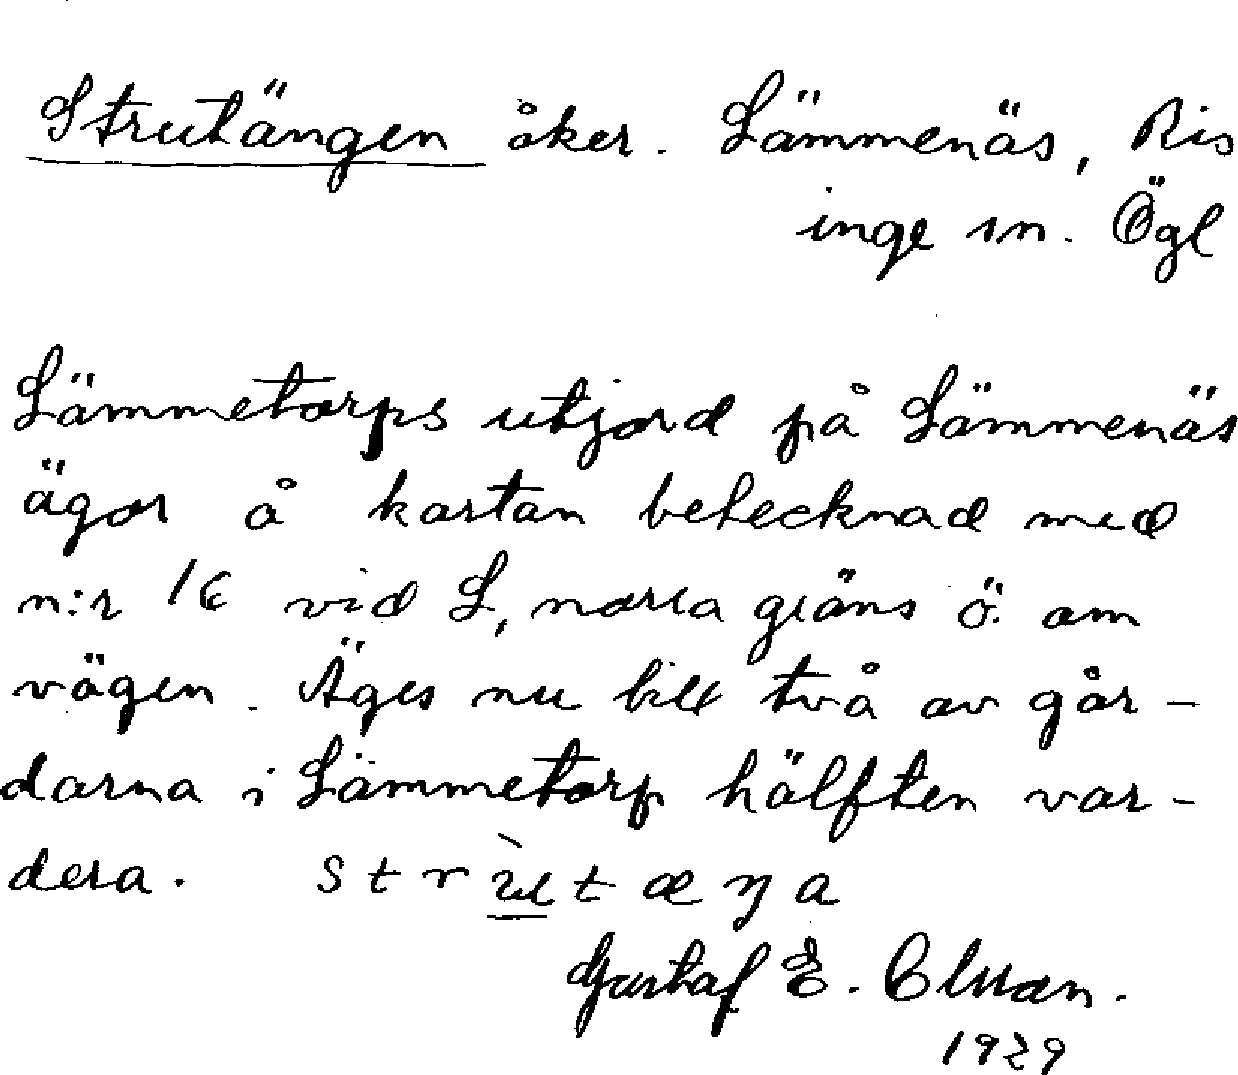 Strutängen åker. Lämmenäs, Ris
inge sn. Ögl
Lämmetorps utjord på Lämmenäs
ägor å kartan betecknad med
n:r 1C vid L, norra gräns ö. om
vägen. Äges nu till två av går-
darna i Lämmetorp hälften var-
dera. strùtæŋa
Gustaf E.
1929